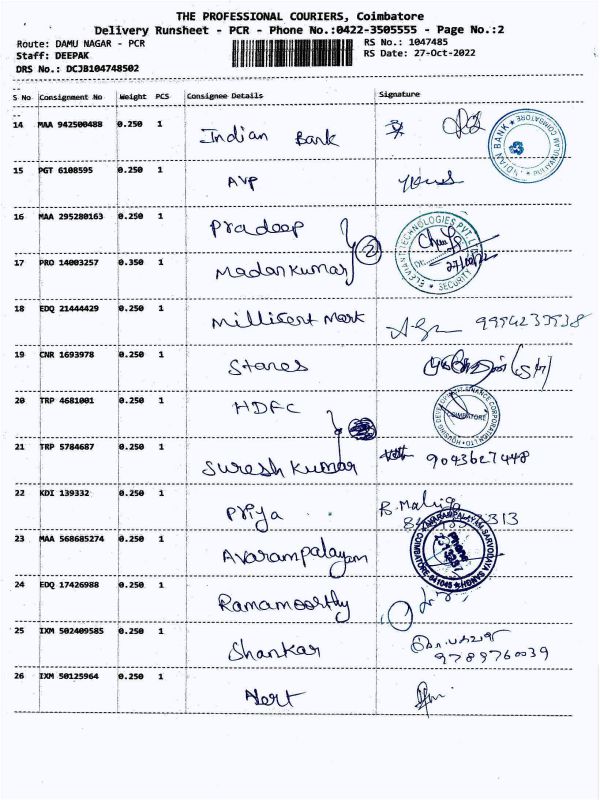 THE PROFESSIONAL COURIERS, Coimbatore
Delivery Runsheet - PCR - Phone No.:0422-3505555 - Page No.:2
Route: DAMU NAGAR - PCR RS No.: 1047485
Staff: DEEPAK RS Date: 27-Oct-2022
DRS No.: DCJB104748502
S No Consignment No Weight PCS Consignee Details Signature
14 MAA 942500488 0.250 1 Indian Bank
INDIAN BANK COIMBATORE
15 PGT 6108595 0.250 1 AVP
16 MAA 295280163 0.250 1 Pradeep
2
TECHNOLOGIES PVT. LTD
SECURITY
27/10/22
17 PRO 14003257 0.350 1 Madankumar
18 EDQ 21444429 0.250 1 Millicent Mark
19 CNR 1693978 0.250 1 Stanes
20 TRP 4681001 0.250 1 HDFC
HOUSING DEVELOPMENT FINANCE CORPORATION LTD
COIMBATORE
21 TRP 5784687 0.250 1 Suresh Kumar 9043627448
22 KDI 139332 0.250 1 Priya
23 MAA 568685274 0.250 1 Avarampalayam
AVARAMPALAYAM SARVODAYA SANGH
COIMBATORE
Phone
24 EDQ 17426988 0.250 1 Ramamoorthy
25 IXM 502409585 0.250 1 Shankar
9789760039
26 IXM 50125964 0.250 1 Alert